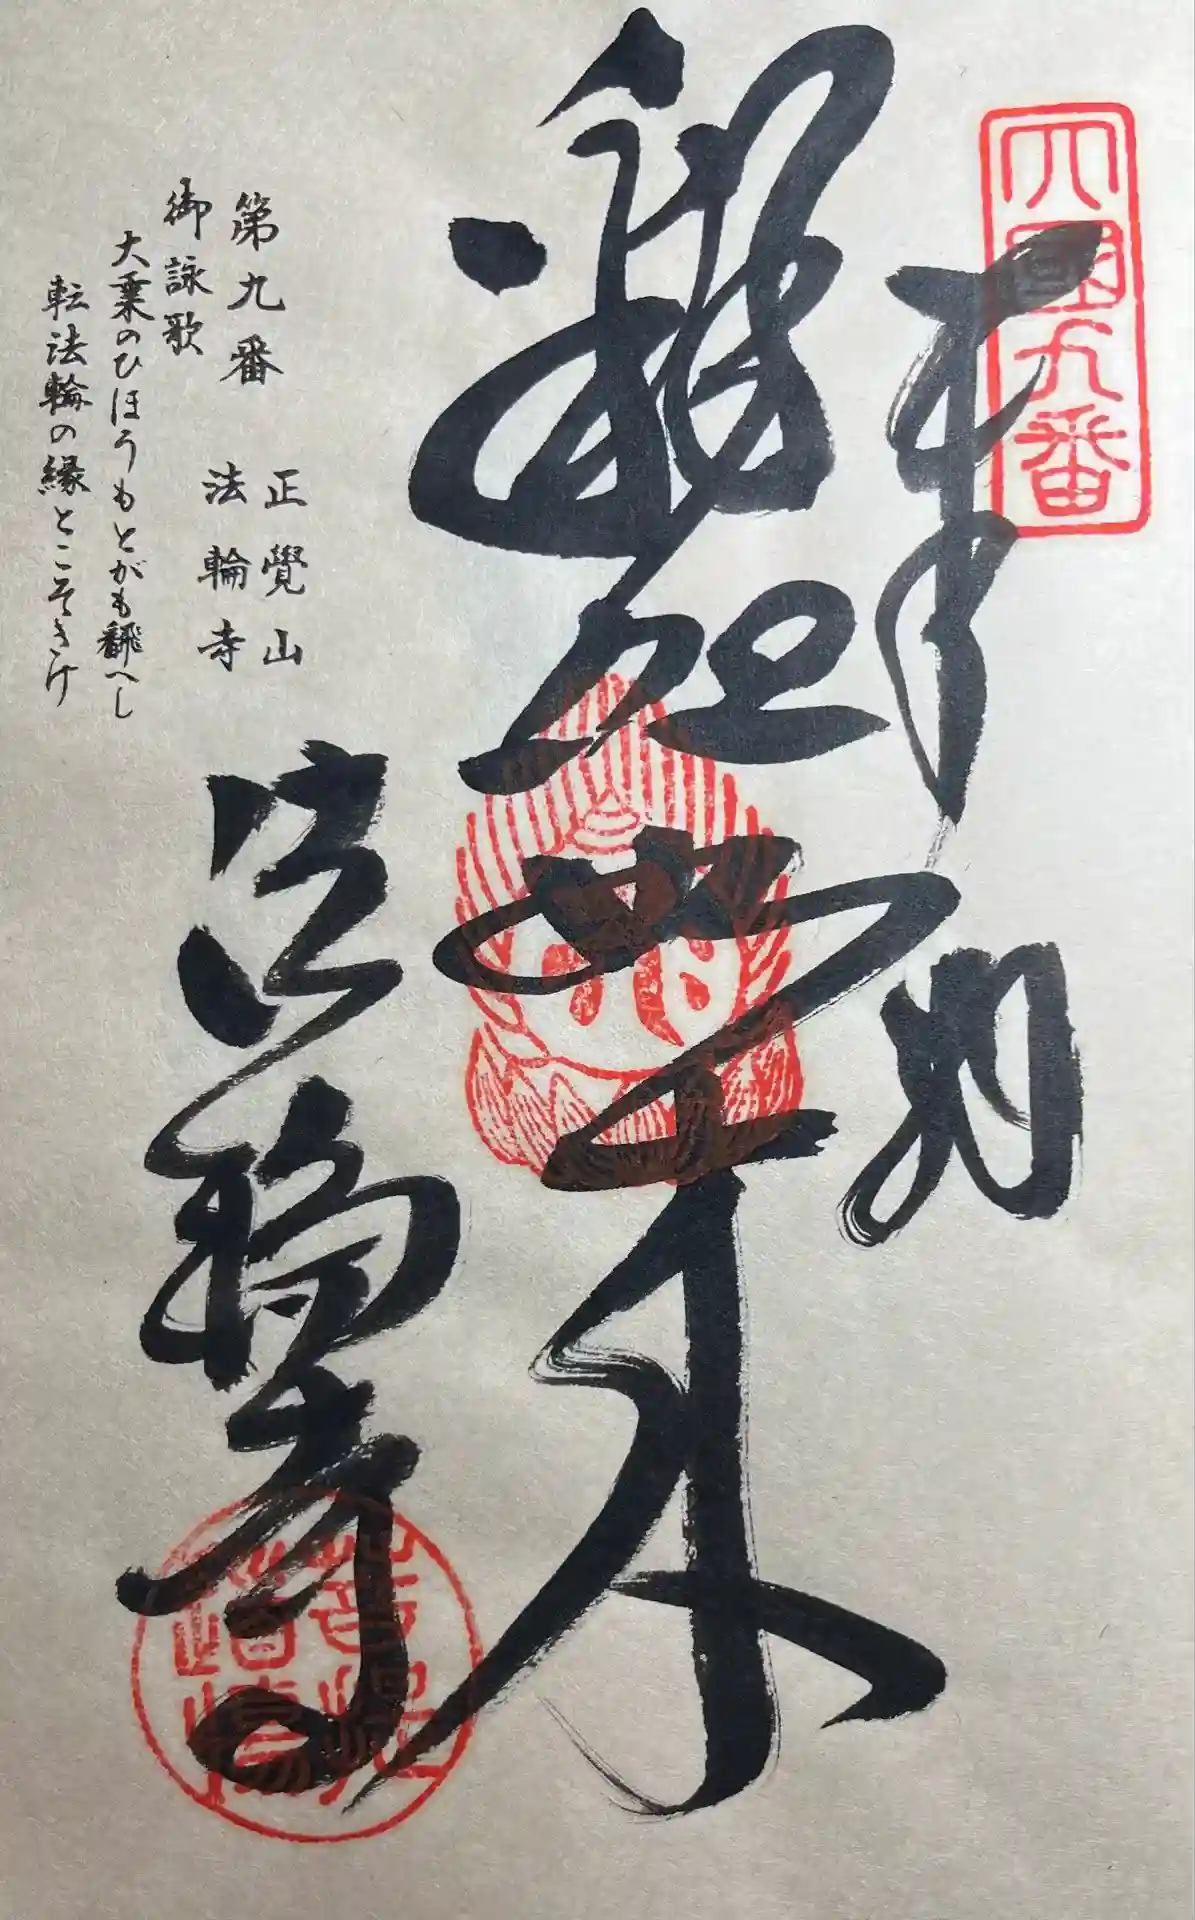 四國九番
奉納
釋迦如来
法輪寺
第九番
正覺山
法輪寺
御詠歌
大乗のひほうもとがも飜へし
転法輪の縁とこそきけ